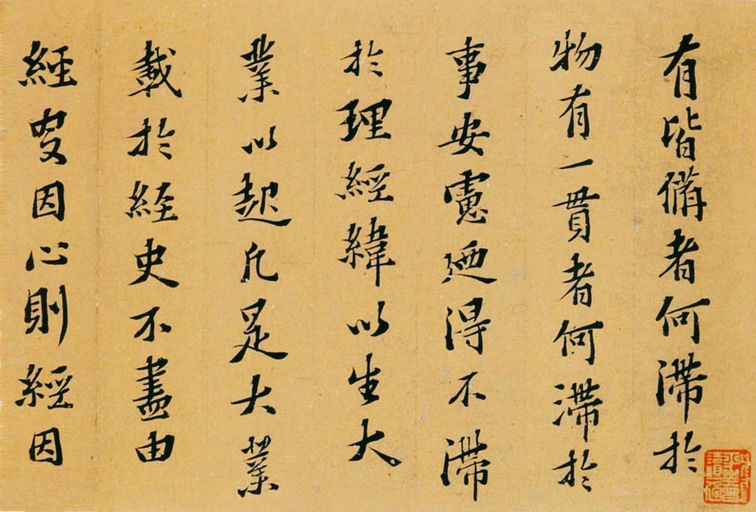 有皆備者何滯於
物有一貫者何滯於
事安慮迺得不滯
於理經緯以生大
業以起凡是大業
載於経史不盡由
經因心則經因